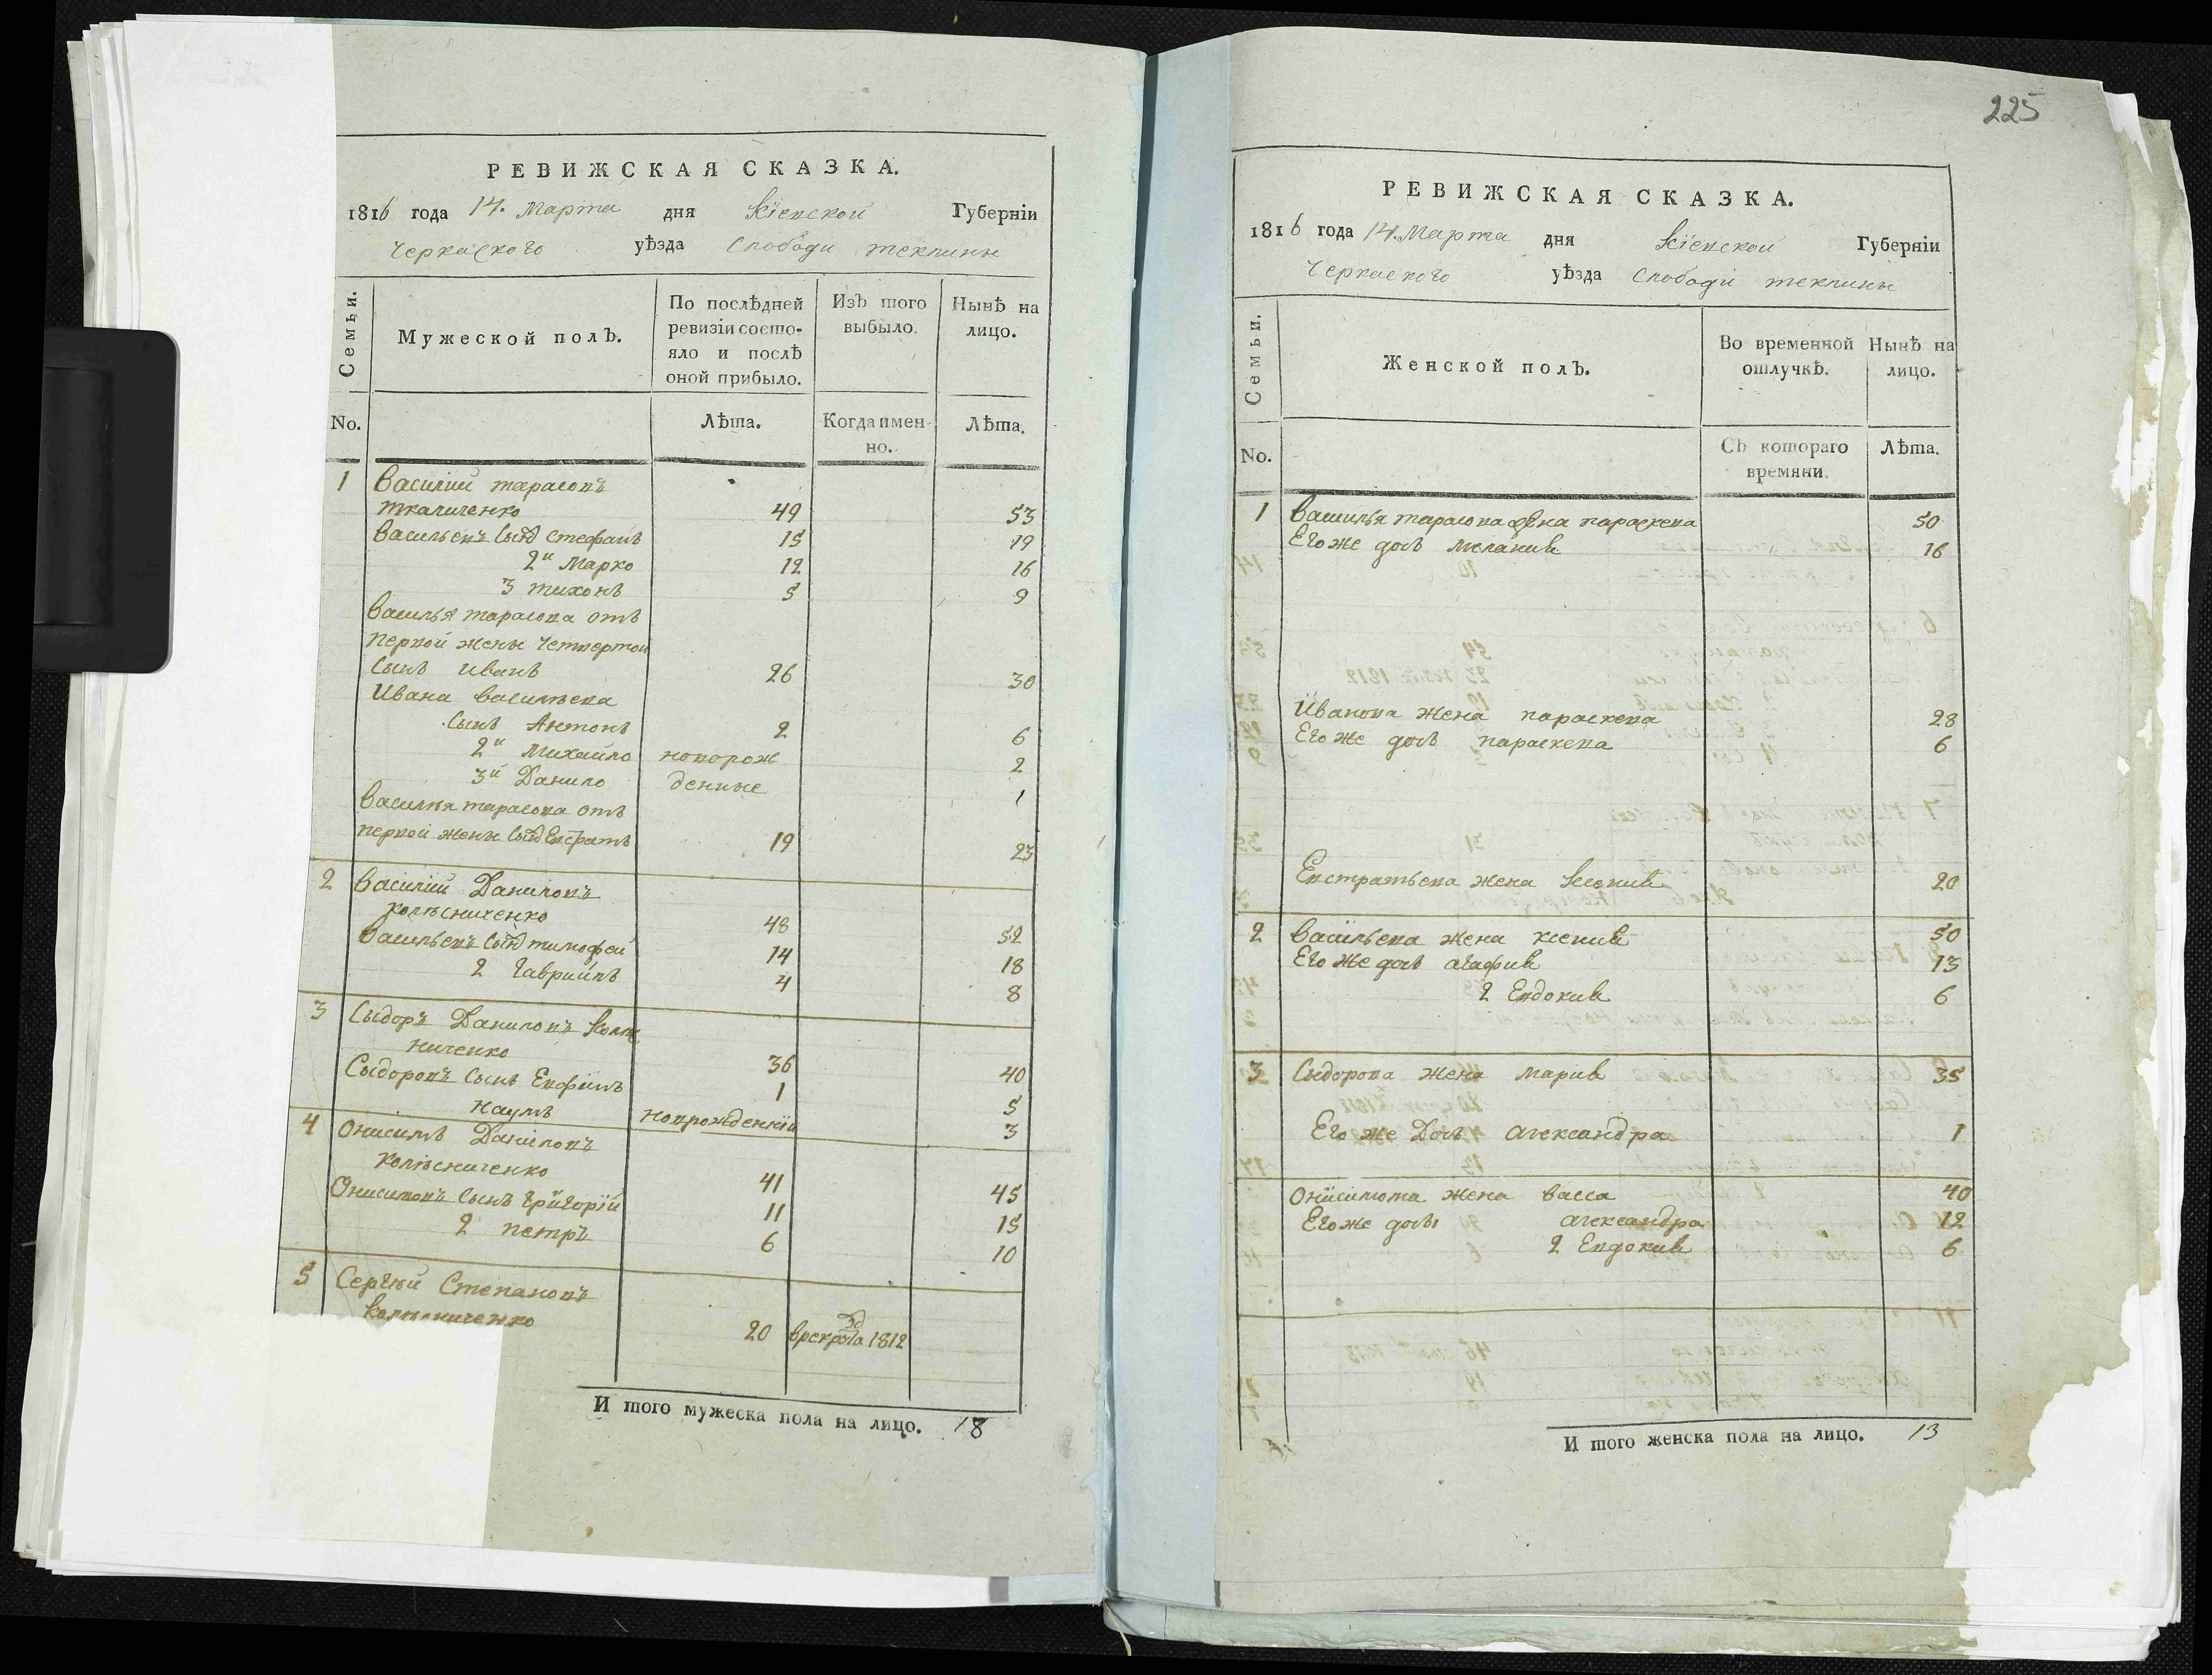 РЕВИЖСКАЯ СКАЗКА.
1816 года 14. Марта дня Кіевской Губерніи
Черкаского уѣзда Слободи теклины
Семьи.
Мужеской полъ.
По послѣдней ревизіи состояло и послѣ оной прибыло.
Изъ того выбыло.
Нынѣ на лицо.
No.
Лѣта.
Когда имен-но.
Лѣта.
1 Василий тарасовъ
ткаличенко 49 53
Васильевъ сынъ стефанъ 15 19
2й Марко 12 16
3 тихонъ 5 9
Василья тарасова отъ
первой жены четвертой
сынъ иванъ 26 30
Ивана васильева
сынъ Антонъ 2 6
2й Михайло новорож 2
3й Данило денные 1
Василья тарасова отъ
первой жены сынъ Евстратъ 19 23
2 Василий Даниловъ
колѣсниченко 48 52
Васильевъ сынъ тимофей 14 18
2 Гавриилъ 4 8
3 Сыдоръ Даниловъ Колѣс
ниченко 36 40
Сыдоровъ сынъ Евфимъ 1 5
Наумъ новрожденній 3
4 Онисимъ Даниловъ
колѣсниченко 41 45
Онисимовъ сынъ григорій 11 15
2 петръ 6 10
5 Сергѣй Степановъ
колѣсниченко 20 1812
И того мужеска пола на лицо. 18
225
РЕВИЖСКАЯ СКАЗКА.
1816 года 14. Марта дня Кіевской Губерніи
Черкаского уѣзда Слободи теклины
Семьи.
Женской полъ.
Во временной отлучкѣ.
Нынѣ на лицо.
No.
Съ котораго времяни.
Лѣта.
1 Василья тарасова жена параскева 50
Его же дочь мелания 16
Иванова жена параскева 28
Его же дочь параскева 6
Евстратьева жена Ксения 20
2 Васильева жена ксения 50
Его же дочь агафия 13
2 Евдокия 6
3 Сыдорова жена мария 35
Его же Дочь александра 1
Онисимова жена васса 40
Его же дочь александра 12
2 Евдокия 6
И того женска пола на лицо. 13